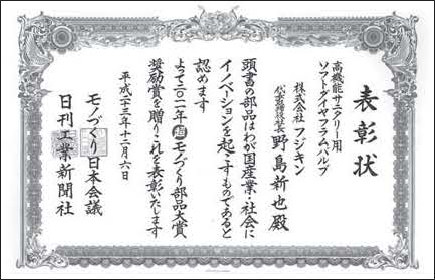 表彰状
高機能サニタリー用
ソフトダイヤフラムバルブ
株式会社フジキン
代表取締役社長 野島新也殿
頭書の部品はわが国産業・社会に
イノベーションを起こすものであると
認めます
よって二〇一一年超モノづくり部品大賞
奨励賞を贈りこれを表彰いたします
平成二十三年十二月六日
モノづくり日本会議
日刊工業新聞社